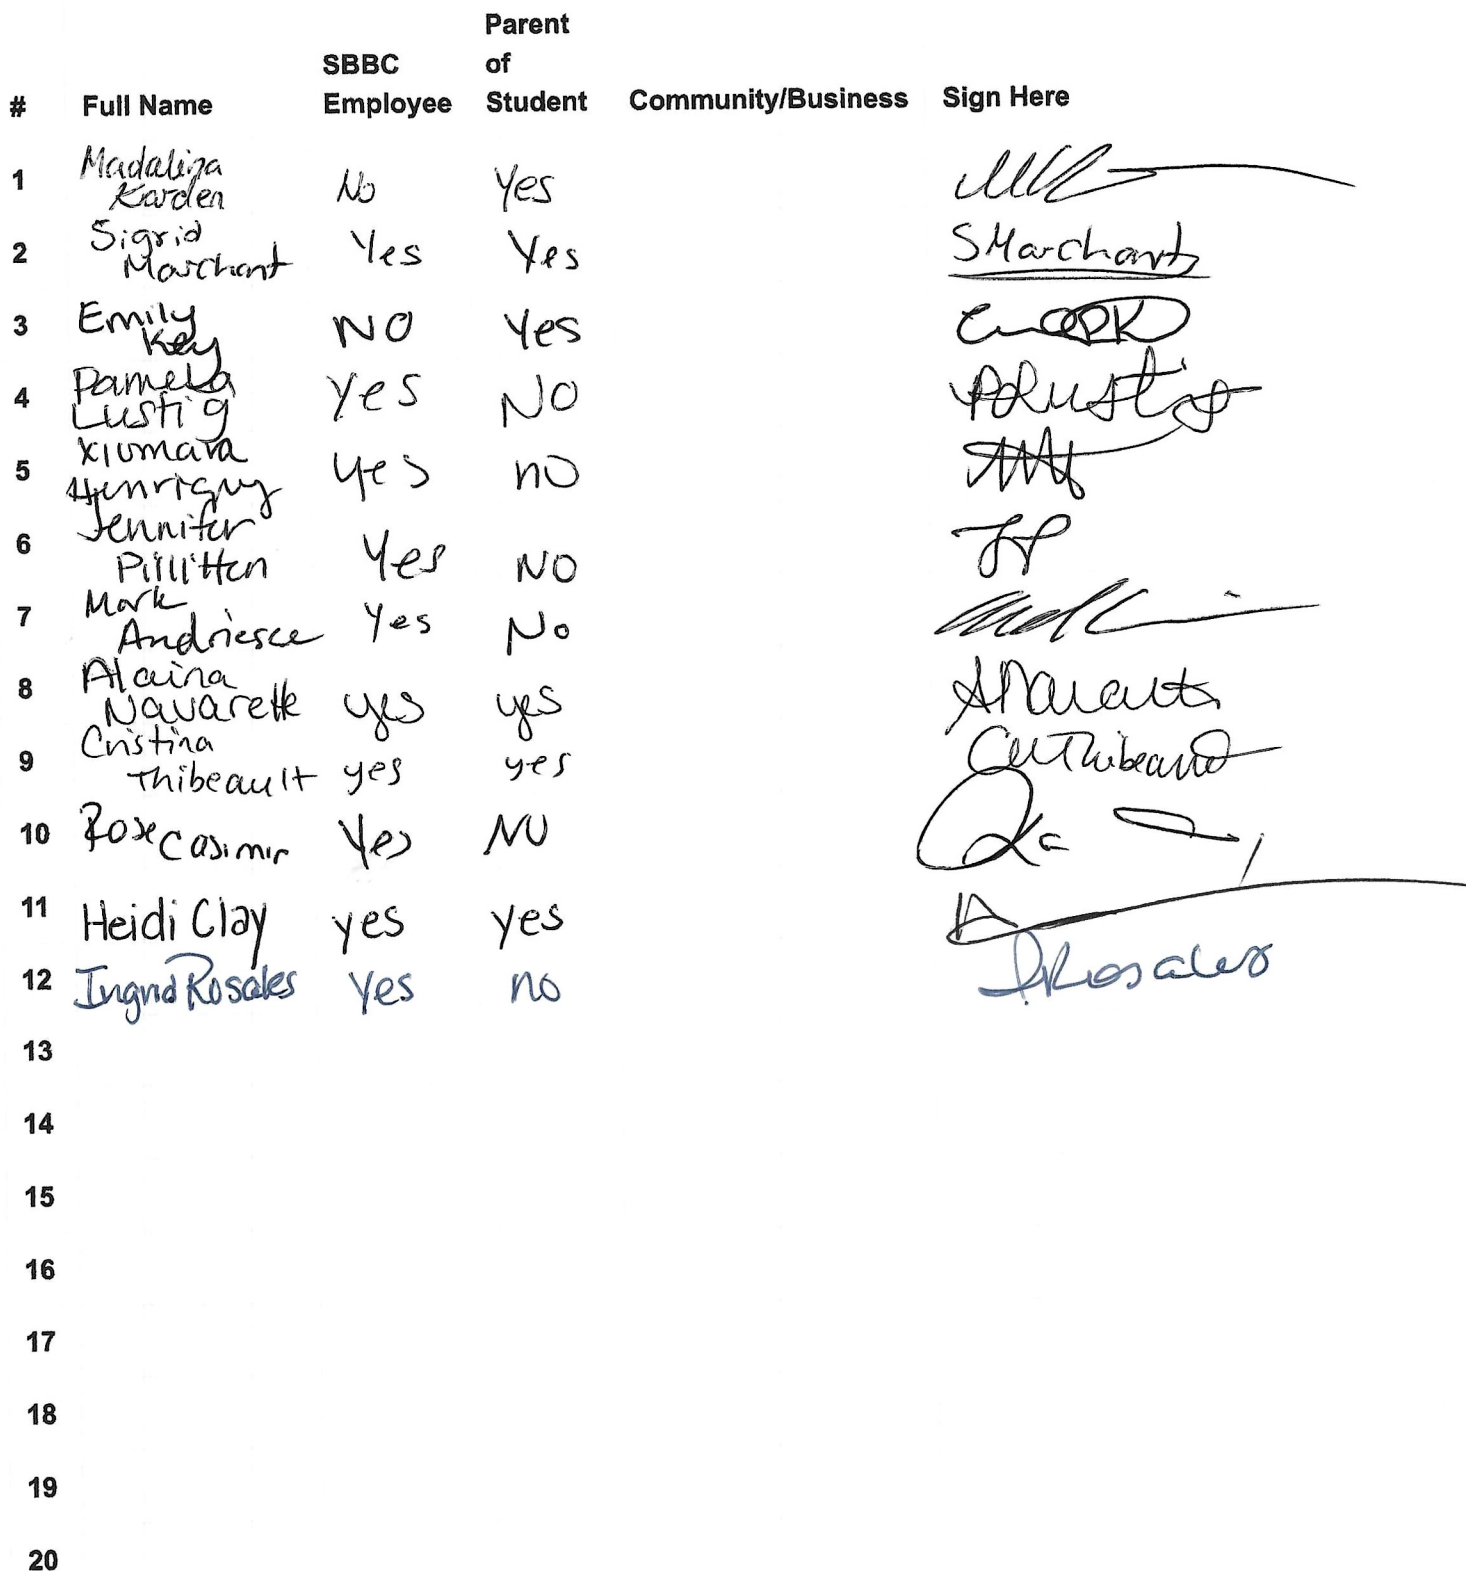 Parent
SBBC of
# Full Name Employee Student Community/Business Sign Here
1 Madalina
Karden No Yes
2 Sigrid
Marchant Yes Yes SMarchant
3 Emily
Key NO Yes
4 Pamela
Lustig Yes NO PLustig
5 Xiomara
yes no
6 Jennifer
Yes NO JP
7 Mark
Yes No
8 Alaina
Navarette yes yes
9 Cristina
Thibeault yes yes CMThibeault
10 Rose Casimir Yes NO
11 Heidi Clay yes yes
12 Ingrid Rosales Yes no IRosales
13
14
15
16
17
18
19
20